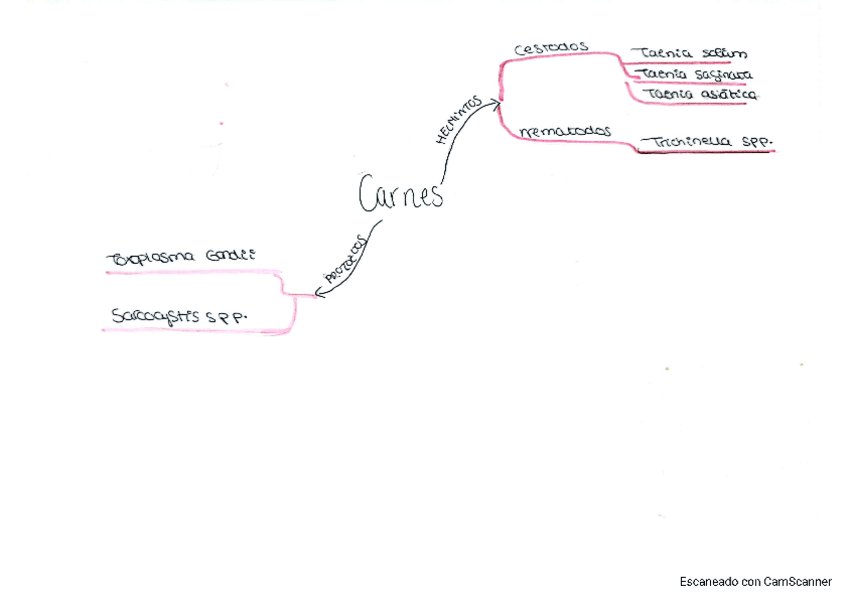 Cestodos
Taenia solium
Taenia saginata
Taenia asiática
HELMINTOS
nematodos
Trichinella spp.
Carnes
PROTOZOOS
Toxoplasma Gondii
Sarcocystis spp.
Escaneado con CamScanner